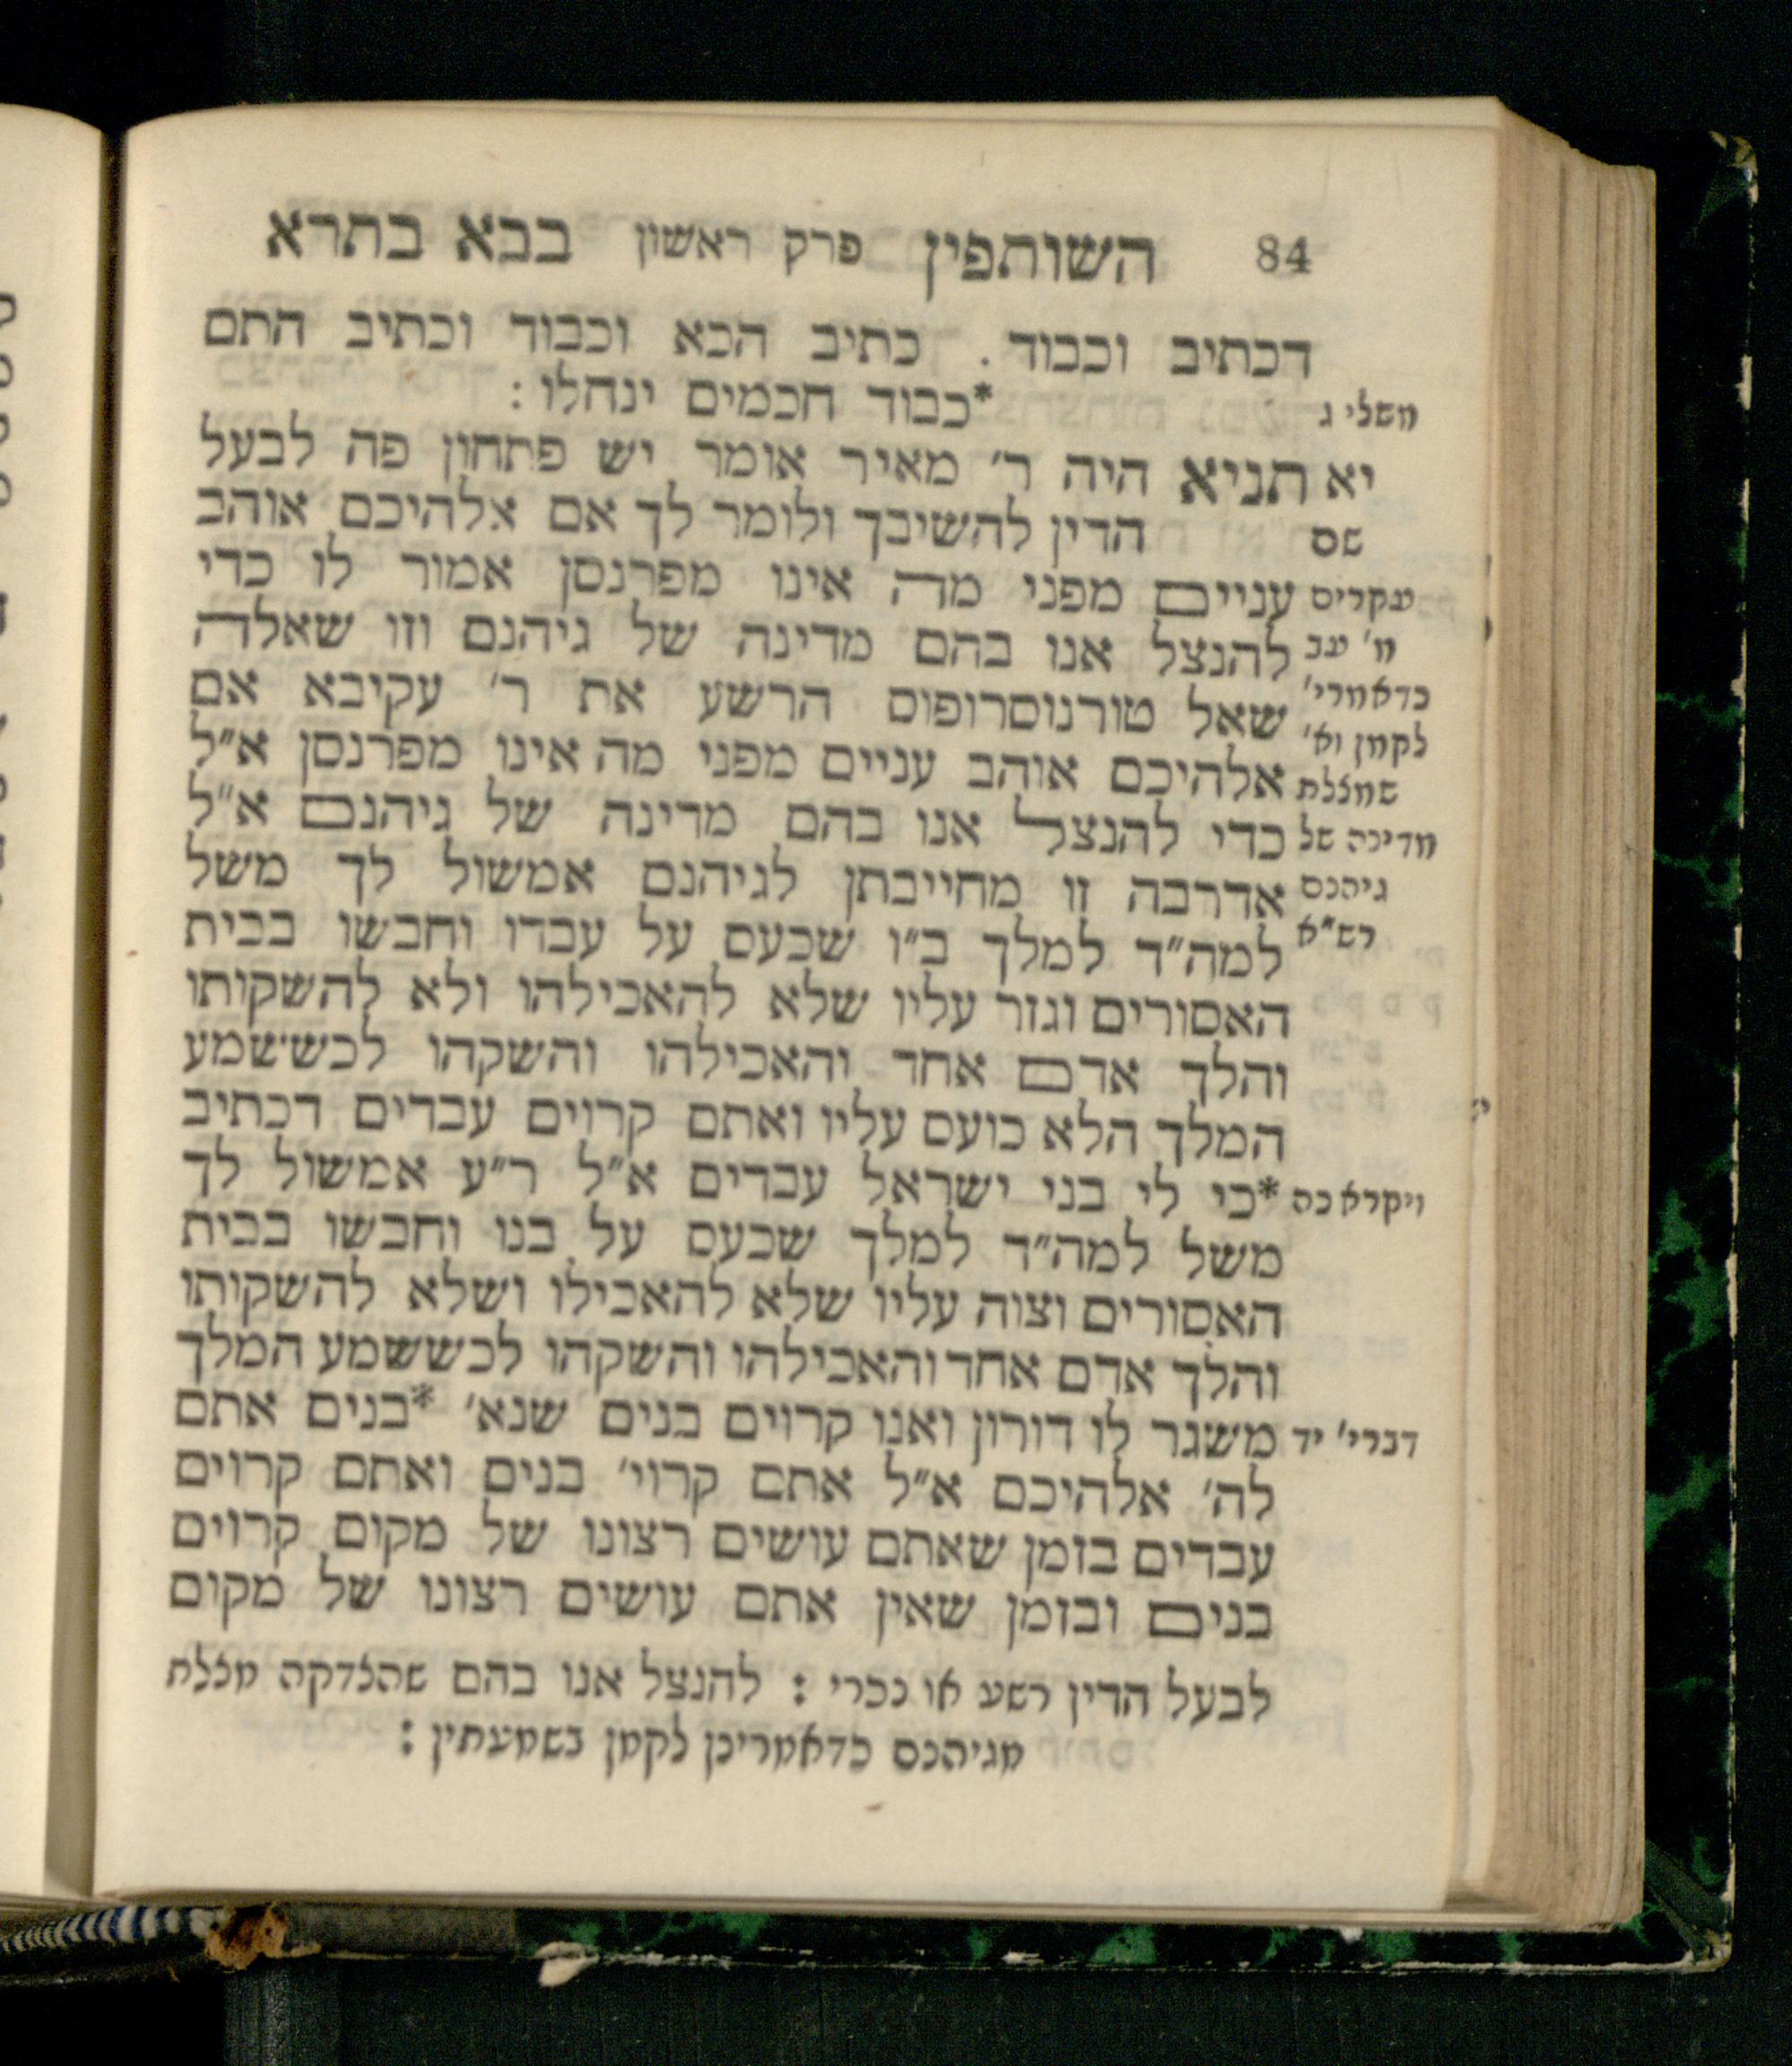 84 השותפין פרק ראשון בבא בתרא
דכתיב וכבוד . כתיב הכא וכבוד וכתיב התם
משלי ג *כבוד חכמים ינחלו :
יא תניא היה ר׳ מאיר אומר יש פתחון פה לבעל
שם הדין להשיבך ולומר לך אם אלהיכם אוהב
עקרים עניים מפני מה אינו מפרנסן אמור לו כדי
להנצל אנו בהם מדינה של גיהנם וזו שאלה
כדאמרי׳ שאל טורנוסרופוס הרשע את ר׳ עקיבא אם
לקמן וא׳ אלהיכם אוהב עניים מפני מה אינו מפרנסן א״ל
שמצלת כדי להנצל אנו בהם מדינה של גיהנם א״ל
מדינה של אדרבה זו מחייבתן לגיהנם אמשול לך משל
גיהנם למה״ד למלך ב״ו שכעס על עבדו וחבשו בבית
רש״א האסורים וגזר עליו שלא להאכילהו ולא להשקותו
והלך אדם אחד והאכילהו והשקהו לכששמע
המלך הלא כועס עליו ואתם קרוים עבדים דכתיב
ויקרא כה *כי לי בני ישראל עבדים א״ל ר״ע אמשול לך
משל למה״ד למלך שכעס על בנו וחבשו בבית
האסורים וצוה עליו שלא להאכילו ושלא להשקותו
והלך אדם אחד והאכילהו והשקהו לכששמע המלך
דברי׳ יד משגר לו דורון ואנו קרוים בנים שנא׳ *בנים אתם
לה׳ אלהיכם א״ל אתם קרוי׳ בנים ואתם קרוים
עבדים בזמן שאתם עושים רצונו של מקום קרוים
בנים ובזמן שאין אתם עושים רצונו של מקום
לבעל הדין רשע או נכרי : להנצל אנו בהם שהצדקה מצלת
מגיהנם כדאמרינן לקמן בשמעתין :